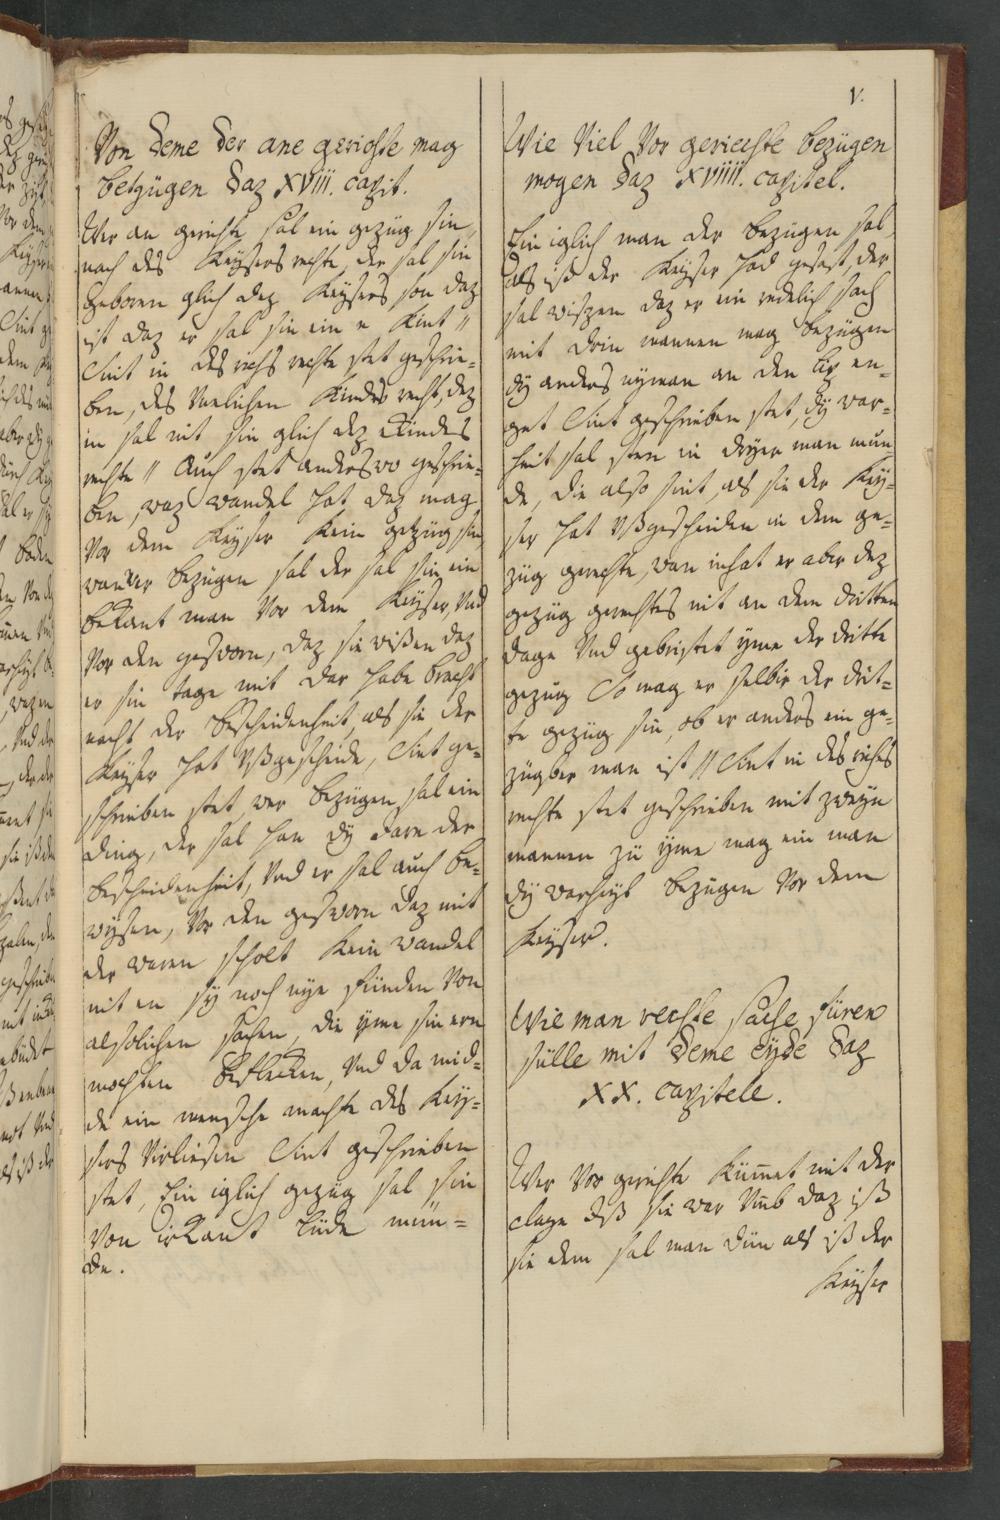 V.
Von deme der ane gerichte mag
betzügen daz XVIII. capit.
Wer an gerichte sal ein gezüg sin,
nach des Keysers rechte, der sal sin
geboren glich dez Keysers son daz
ist daz er sal sin ein e Kint //
Sint in des richs rechte stet geschrie-
ben, des Unelichen Kindes recht, dez
in sal nit sin glich dez eKindes
rechte // Auch stet anderswo geschrie-
ben, waz wandel hat daz mag
vor dem Keyser kein getzüg sin,
wan wer bezügen sal der sal sin ein
bekant man vor dem Keyser, Und
vor den gesworn, daz sie wißen daz
er sin tage mit dar habe bracht
nacht der bescheidenheit, als sie der
Keyser hat Ußgescheide, Sint ge-
schrieben stet wer bezügen sal ein
ding, der sal han dy varn der
bescheidenheit, Und er sal auch be-
wysen, vor den gesworn daz mit
der waren scholt kein wandel
nit en sy noch nye funden von
alsolichen sachen, die yme sin ern
mochten beflecken, Und da mid-
de ein mensche machte des Key-
sers Virliesen Sint geschrieben
stet, Ein iglich gezüg sal sin
von irkant lüde mün-
de.
Wie Viel Vor geriechte bezügen
mogen daz XVIIII. capitel.
Ein iglich man der bezügen sal,
als iß der Keyser had gesast, der
sal wiszen daz er ein redelich sach
mit drin mannen mag bezügen
dy anders nyman an den lip en-
get Sint geschrieben stet, dy war-
heit sal sten in dryer man mun-
de, die also sint, als sie der Key-
ser hat Ußgescheiden in dem ge-
züg gerechte, wan inhat er aber dez
gezüg gerechtes nit an dem dritten
dage Und gebristet yme der dritte
gezüg So mag er selbir der drit-
te gezüg sin, ob er anders ein ge-
zügber man ist // Sint in des richs
rechte stet geschrieben mit zweyn
mannen zü yme mag ein man
dy warheyt bezügen vor dem
Keyser.
Wie man rechte sache füren
sülle mit deme eyde daz
XX. capitele.
Wer vor gerichte kümet mit der
clage dß sie war Umb daz iß
sie dem sal man dün als iß der
Keyser